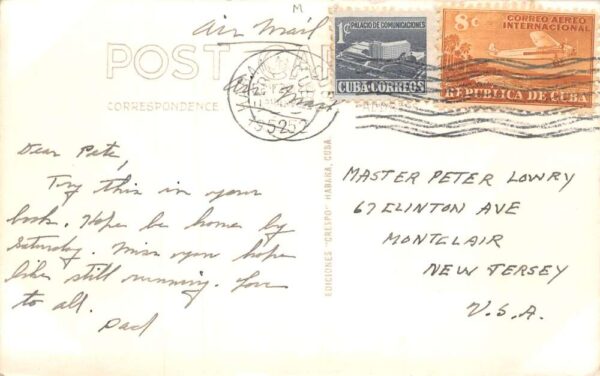 M
Air Mail
POST
CORRESPONDENCE
Air Mail
1952
1¢ PALACIO DE COMUNICACIONES
CUBA·CORREOS
8¢ CORREO AEREO
INTERNACIONAL
REPUBLICA DE CUBA
Dear Pete,
Try this in your
book. Hope be home by
Saturday. Miss you hope
bike still running. Love
to all.
Dad
EDICIONES "CRESPO" HABANA, CUBA
MASTER PETER LOWRY
67 CLINTON AVE
MONTCLAIR
NEW JERSEY
U.S.A.